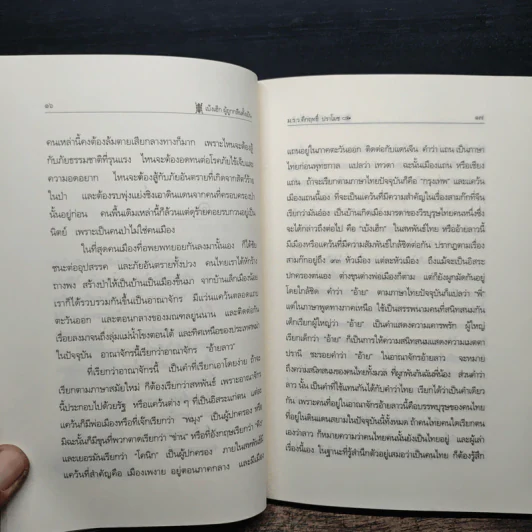 ๑๖
เบ้งเฮ็ก ผู้ถูกกลืนทั้งเป็น
คนเหล่านี้คงต้องล้มตายเสียกลางทางก็มาก เพราะไหนจะต้องสู้
กับภัยธรรมชาติที่รุนแรง ไหนจะต้องอดทนต่อโรคภัยไข้เจ็บและ
ความอดอยาก ไหนจะต้องสู้กับภัยอันตรายที่เกิดจากสัตว์ร้าย
ในป่า และต้องรบพุ่งแย่งชิงเอาดินแดนจากคนที่ครอบครองป่า
นั้นอยู่ก่อน คนพื้นเดิมเหล่านี้ก็ล้วนแต่ดุร้ายคอยรบกวนอยู่เป็น
นิตย์ เพราะเป็นคนป่าไม่ใช่คนเมือง
ในที่สุดคนเมืองที่อพยพทยอยกันลงมานั้นเอง ก็ได้ชัย
ชนะต่ออุปสรรค และภัยอันตรายทั้งปวง คนไทยเราได้หักร้าง
ถางพง สร้างป่าให้เป็นบ้านเป็นเมืองขึ้นมา จากบ้านเล็กเมืองน้อย
เราก็ได้รวบรวมกันขึ้นเป็นอาณาจักร มีแว่นแคว้นตลอดแถบ
ตะวันออก และตอนกลางของมณฑลยูนนาน และติดต่อกัน
เรื่อยลงมาจนถึงลุ่มแม่น้ำโขงตอนใต้ และทิศเหนือของประเทศพม่า
ในปัจจุบัน อาณาจักรนี้เรียกว่าอาณาจักร "อ้ายลาว"
ที่เรียกว่าอาณาจักรนี้ เป็นคำที่เรียกเอาโดยง่าย ถ้าจะ
เรียกตามภาษาสมัยใหม่ ก็ต้องเรียกว่าสหพันธ์ เพราะอาณาจักร
นี้ประกอบไปด้วยรัฐ หรือแคว้นต่าง ๆ ที่เป็นอิสระแก่ตน แต่ละ
แคว้นก็มีพ่อเมืองหรือที่เจ๊กเรียกว่า "หมุง" เป็นผู้ปกครอง หรือ
มิฉะนั้นก็มีขุนที่พวกตาดเรียกว่า "ข่าน" หรือที่อังกฤษเรียกว่า "คิง"
และเยอรมันเรียกว่า "โคนิก" เป็นผู้ปกครอง ภายในสหพันธ์นี้
แคว้นที่สำคัญคือ เมืองเพงาย อยู่ตอนภาคกลาง และมีเมือง
ม.ร.ว.คึกฤทธิ์ ปราโมช
๑๗
แถนอยู่ในภาคตะวันออก ติดต่อกับแดนจีน คำว่า แถน เป็นภาษา
ไทยก่อนพุทธกาล แปลว่า เทวดา ฉะนั้นเมืองแถน หรือเชียง
แถน ถ้าจะเรียกตามภาษาไทยปัจจุบันก็คือ "กรุงเทพ" และแคว้น
เมืองแถนนี้เอง ที่จะเป็นแคว้นที่มีความสำคัญในเรื่องสามก๊กที่จีน
เรียกว่ามันอ๋อง เป็นบ้านเกิดเมืองมารดาของวีรบุรุษไทยคนหนึ่งซึ่ง
จะได้กล่าวถึงต่อไป คือ "เบ้งเฮ็ก" ในสหพันธ์ไทย หรืออ้ายลาวนี้
มีเมืองหรือแคว้นที่มีความสัมพันธ์ใกล้ชิดต่อกัน ปรากฏตามเรื่อง
สามก๊กอยู่ถึง ๙๓ หัวเมือง แต่ละหัวเมือง ถึงแม้จะเป็นอิสระ
ปกครองตนเอง ต่างขุนต่างพ่อเมืองก็ตาม แต่ก็ยังผูกมัดกันอยู่
โดยใกล้ชิด คำว่า "อ้าย" ตามภาษาไทยปัจจุบันก็แปลว่า "พี่"
แต่ในภาษาพูดทางภาคเหนือ ใช้เป็นสรรพนามคนที่สนิทสนมกัน
เด็กเรียกผู้ใหญ่ว่า "อ้าย" เป็นคำแสดงความเคารพรัก ผู้ใหญ่
เรียกเด็กว่า "อ้าย" ก็เป็นการให้ความสนิทสนมแสดงความเมตตา
ปรานี ฉะรอยคำว่า "อ้าย" ในอาณาจักรอ้ายลาว จะหมาย
ถึงความสนิทสนมของคนไทยทั้งมวลที่ ที่ผูกพันกันฉันพี่น้อง ส่วนคำว่า
ลาว นั้น เป็นคำที่ใช้แทนกันได้กับคำว่าไทย เรียกได้ว่าเป็นคำเดียว
กัน เพราะคนที่อยู่ในอาณาจักรอ้ายลาวนี้คือบรรพบุรุษของคนไทย
ที่อยู่ในดินแดนสยามในปัจจุบันนี้ทั้งหมด ถ้าคนไทยคนใดเรียกตน
เองว่าลาว ก็หมายความว่าคนไทยคนนั้นยังเป็นไทยอยู่ และผู้เล่า
เรื่องนี้เอง ในฐานะที่รู้สำนึกตัวอยู่เสมอว่าเป็นคนไทย ก็ต้องรู้สึก